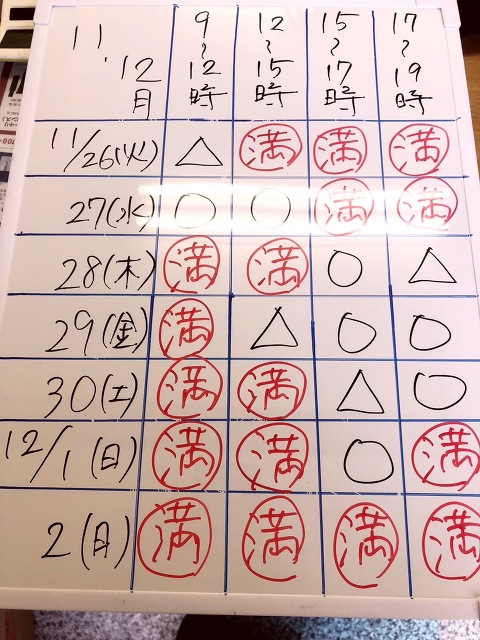 11.12月 9~12時 12~15時 15~17時 17~19時
11/26(火) △ 満 満 満
27(水) ○ ○ 満 満
28(木) 満 満 ○ △
29(金) 満 △ ○ ○
30(土) 満 満 △ ○
12/1(日) 満 満 ○ 満
2(月) 満 満 満 満